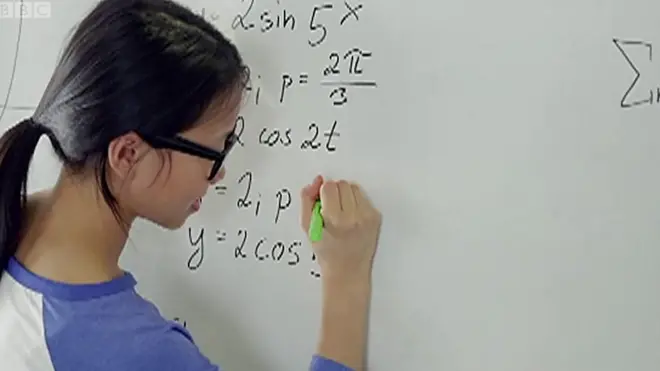 BBC
2 sin 5x
2, p = 2π/3
2 cos 2t
= 2, p
y = 2 cos
Σ